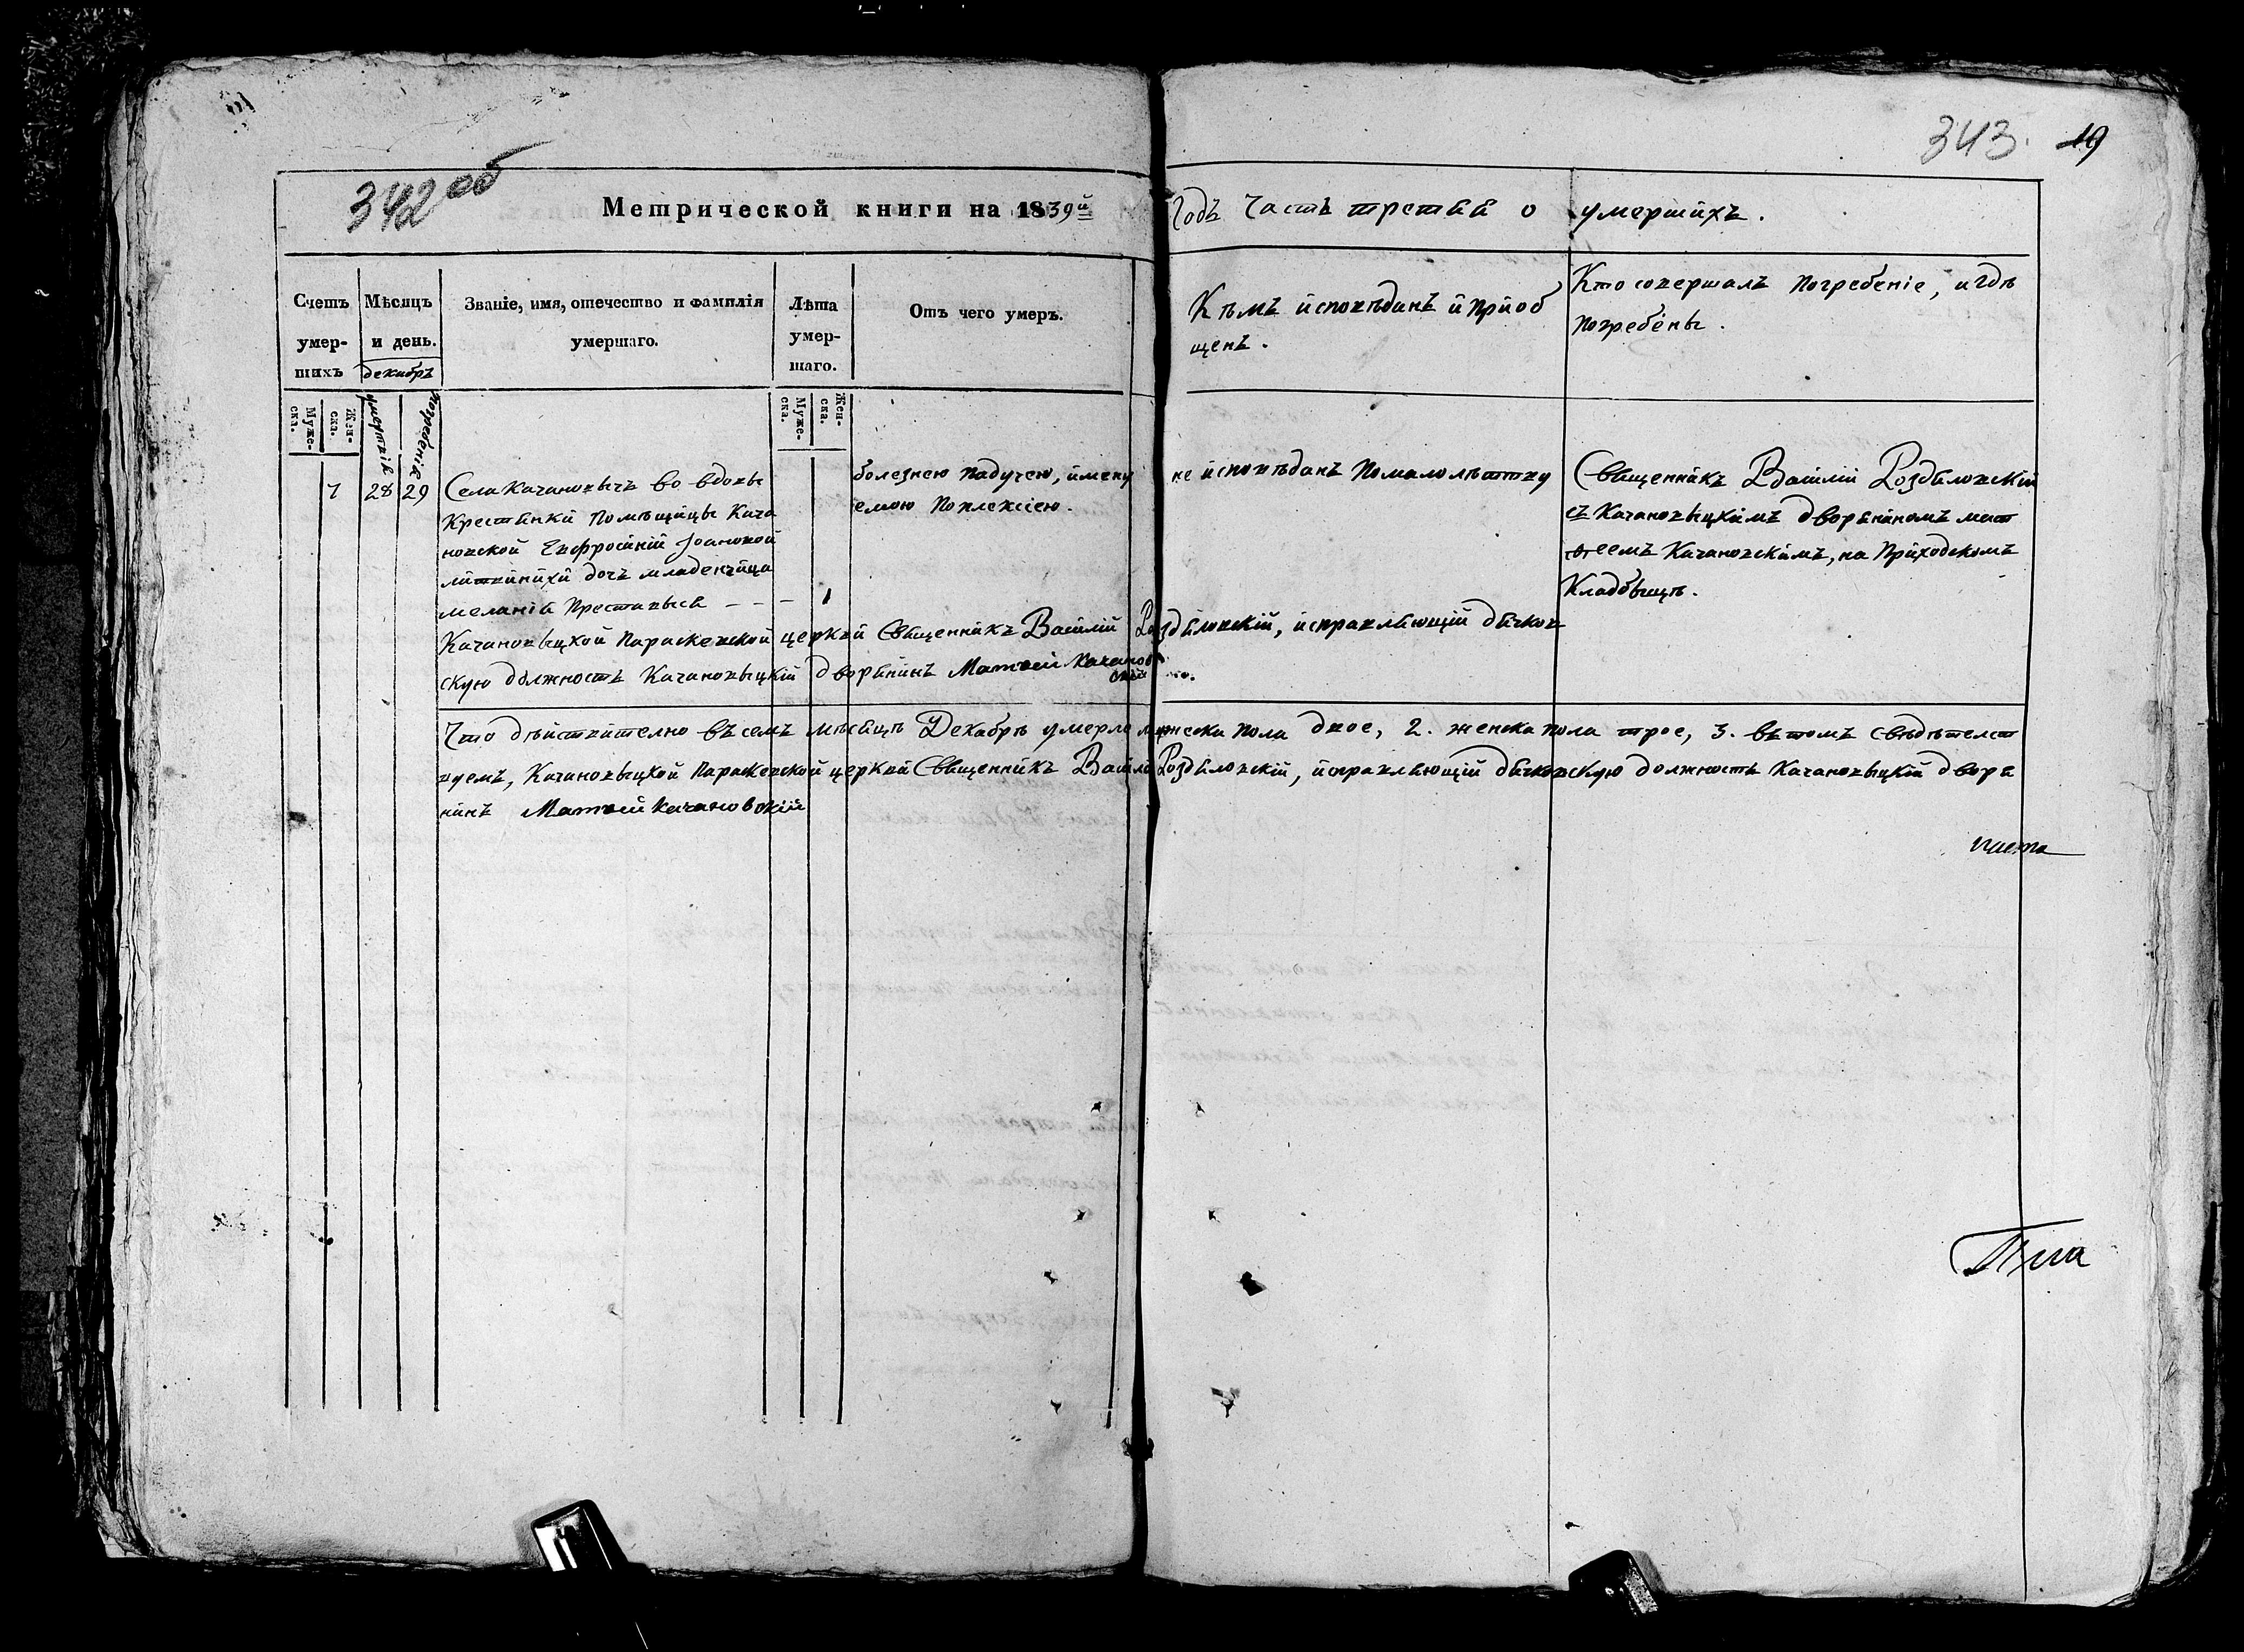 343. 19
342 об
Метрической книги на 1839й Годъ Часть третья о умершихъ.
Счетъ умер-шихъ
Мѣсяцъ и день.
декабръ
Званіе, имя, отечество и фамилія умершаго.
Лѣта умер-шаго.
Отъ чего умеръ.
Кѣмъ исповѣданъ и приоб
щенъ.
Кто совершалъ погребеніе, и гдѣ
погребены.
Муже-ска.
Жен-ска.
умертвія
погребенія
Муже-ска.
Жен-ска.
7 28 29
Села Качановычъ во вдовы
Крестянки помѣщицы Кача
новской Евфросиніи Іоановой
Литвинихи дочъ младенчица
Меланія преставься - - - 1
болезнею падучею, имену
емою поплексіею.
не исповѣданъ помалолѣтству
Священникъ Василій Роздяловскій
съ Качановыцкимъ дворяниномъ мат
веемъ Качановскимъ, на приходскомъ
Кладбыщѣ.
Качановыцкой Параскевской церкви Священникъ Василій Роздяловскій, исправляющій дячков
скую должность Качановыцкій дворянинъ Матвей Качанов
скій
Что дѣйствително въ семъ мѣсяцѣ Декабрѣ умерло мужеска пола двое, 2. женска пола трое, 3. въ томъ свѣдѣтелст
вуемъ, Качановыцкой Параскевской церкви Священникъ Василій Роздяловскій, исправляющій дячковскую должность Качановыцкій дворя
нинъ Матвей Качановскій